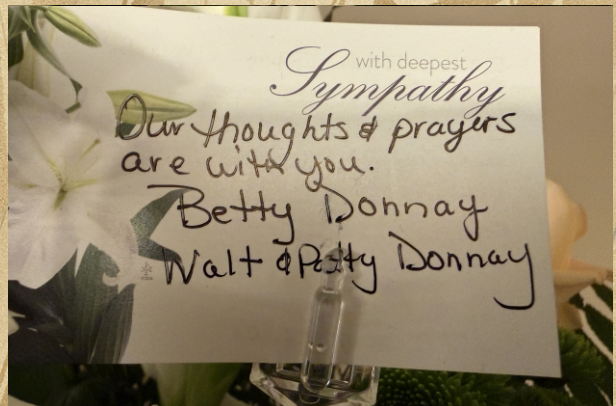 with deepest
Sympathy
Our thoughts & prayers
are with you.
Betty Donnay
Walt & Patty Donnay